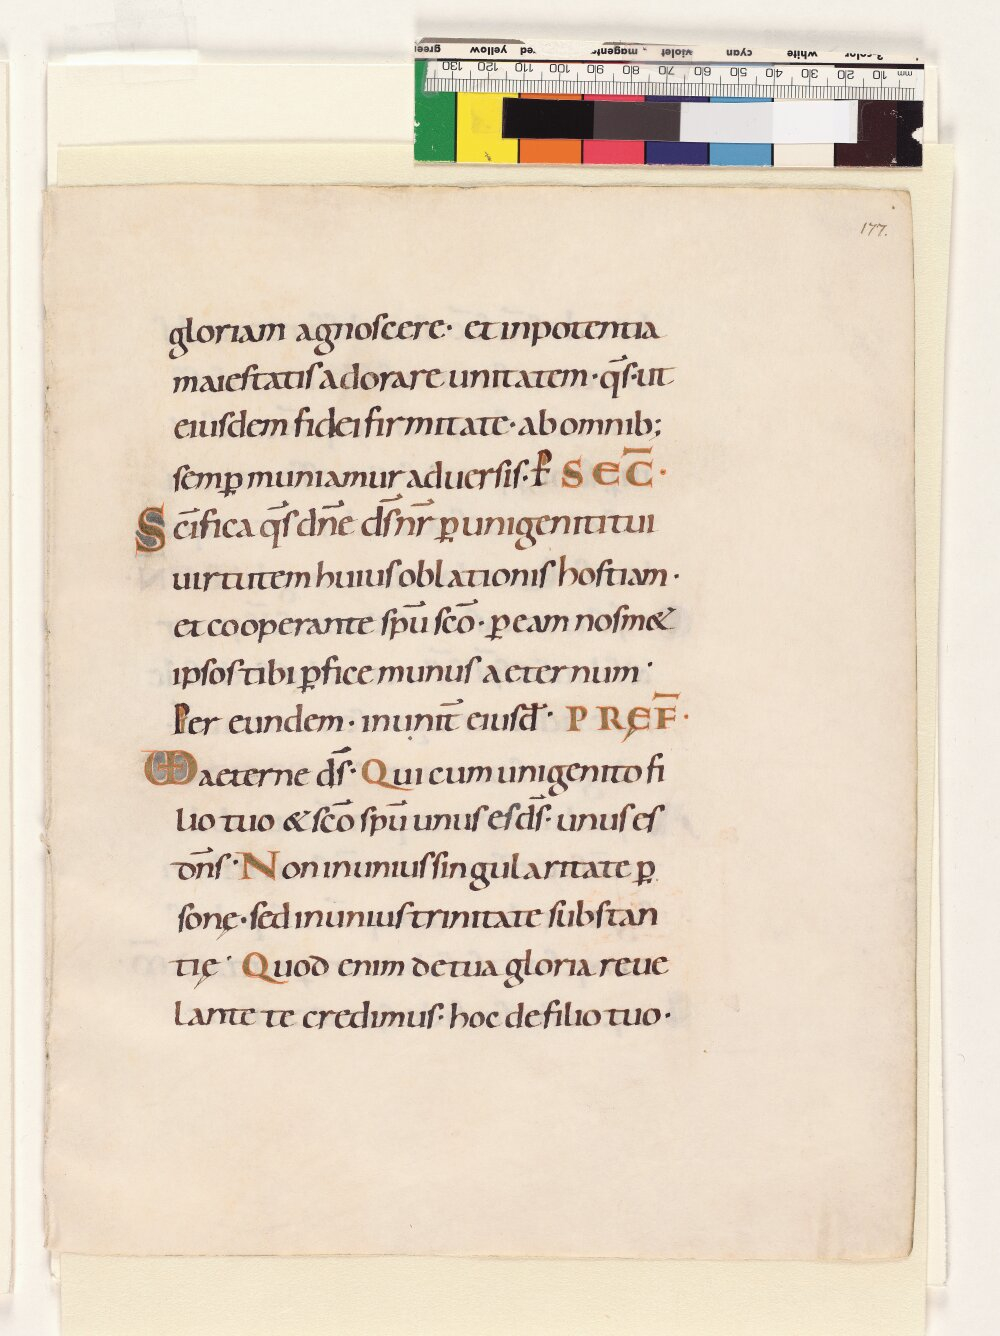 green yellow red magenta violet cyan white 3-color
130 120 110 100 90 80 70 60 50 40 30 20 10 mm
177.
gloriam agnoscere· et in potentia
maiestatis adorare unitatem· q̄s· ut
eiusdem fidei firmitate· ab omnib;
semꝑ muniamur adversis· ꝑ SEC̄·
Sc̄ifica q̄s dn̄e ds̄ nr̄ ꝑ unigeniti tui
virtutem huius oblationis hostiam·
et cooperante spū scō· ꝑ eam nosm&
ipsos tibi ꝑfice munus aeternum·
Per eundem· in unit̄ eiusđ· PRĘF̄·
VD aeterne ds̄· Qui cum unigenito fi
lio tuo & scō spū unus es ds̄· unus es
dn̄s· Non in unius singularitate ꝑ
sonę· sed in unius trinitate substan
tię· Quod enim de tua gloria reve
lante te credimus· hoc de filio tuo·